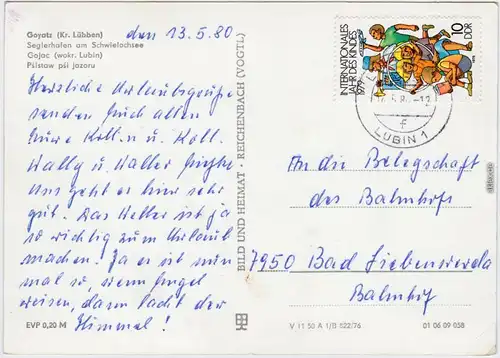 Goyatz (Kr. Lübben)
Seglerhafen am Schwielochsee
Gojac (wokr. Lubin)
Pśistaw pśi jazoru
den 13.5.80
Herzliche Urlaubsgrüße
senden Euch allen
Eure Koll.n u. Koll.
Wally u. Walter
Uns geht es hier sehr
gut. Das Wetter ist ja
so richtig zum Urlaub
machen. Ja es ist nun
mal so, wenn Engel
reisen, dann lacht der
Himmel!
EVP 0,20 M
BILD UND HEIMAT · REICHENBACH (VOGTL)
INTERNATIONALES
JAHR DES KINDES
1979
10
DDR
f
LUBIN 1
An die Belegschaft
des Bahnhofs
7950 Bad Liebenwerda
Bahnhof
V 11 50 A 1/B 522/76
01 06 09 058